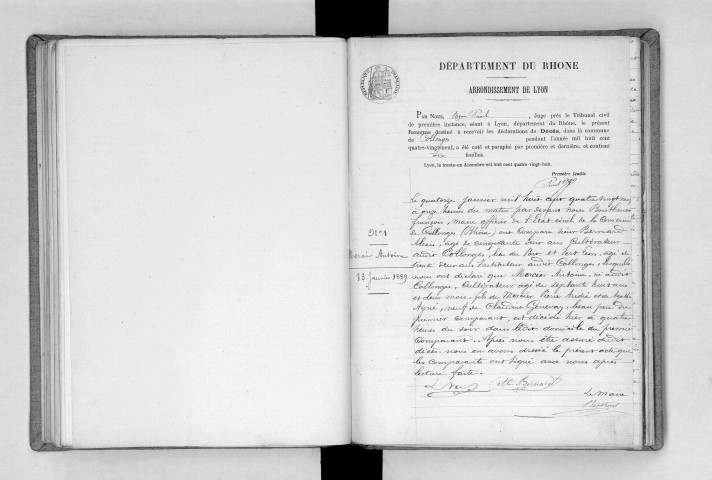 DÉPARTEMENT DU RHONE
ARRONDISSEMENT DE LYON
RÉPUBLIQUE FRANÇAISE
PAR NOUS, Paul, Juge près le Tribunal civil
de première instance, séant à Lyon, département du Rhône, le présent
Registre destiné à recevoir les déclarations de Décès, dans la commune
de Collonges pendant l'année mil huit cent
quatre-vingt-neuf, a été coté et paraphé par première et dernière, et contient
feuilles.
Lyon, le trente-un décembre mil huit cent quatre-vingt-huit.
Première feuille
N°1
Mercier Antoine
13 Janvier 1889
Le quatorze janvier mil huit cent quatre vingt neuf
à onze heures du matin par devant nous
François, maire officier de l'Etat civil de la Commune
de Collonges (Rhône) ont comparu sieur Bernard
âgé de cinquante ans Cultivateur
audit Collonges, lieu du et âgé de
trente ans Instituteur audit Collonges, lesquels
nous ont déclaré que Mercier Antoine, né audit
Collonges, Cultivateur âgé de septante huit ans
et deux mois, fils de Mercier Pierre André et de
veuf de Claudine beau père du
premier comparant, est décédé hier à quatre
heures du soir dans ledit domicile du premier
comparant. Après nous être assuré dudit
décès nous en avons dressé le présent acte que
les comparants ont signé avec nous après
lecture faite.
Bernard
Le Maire